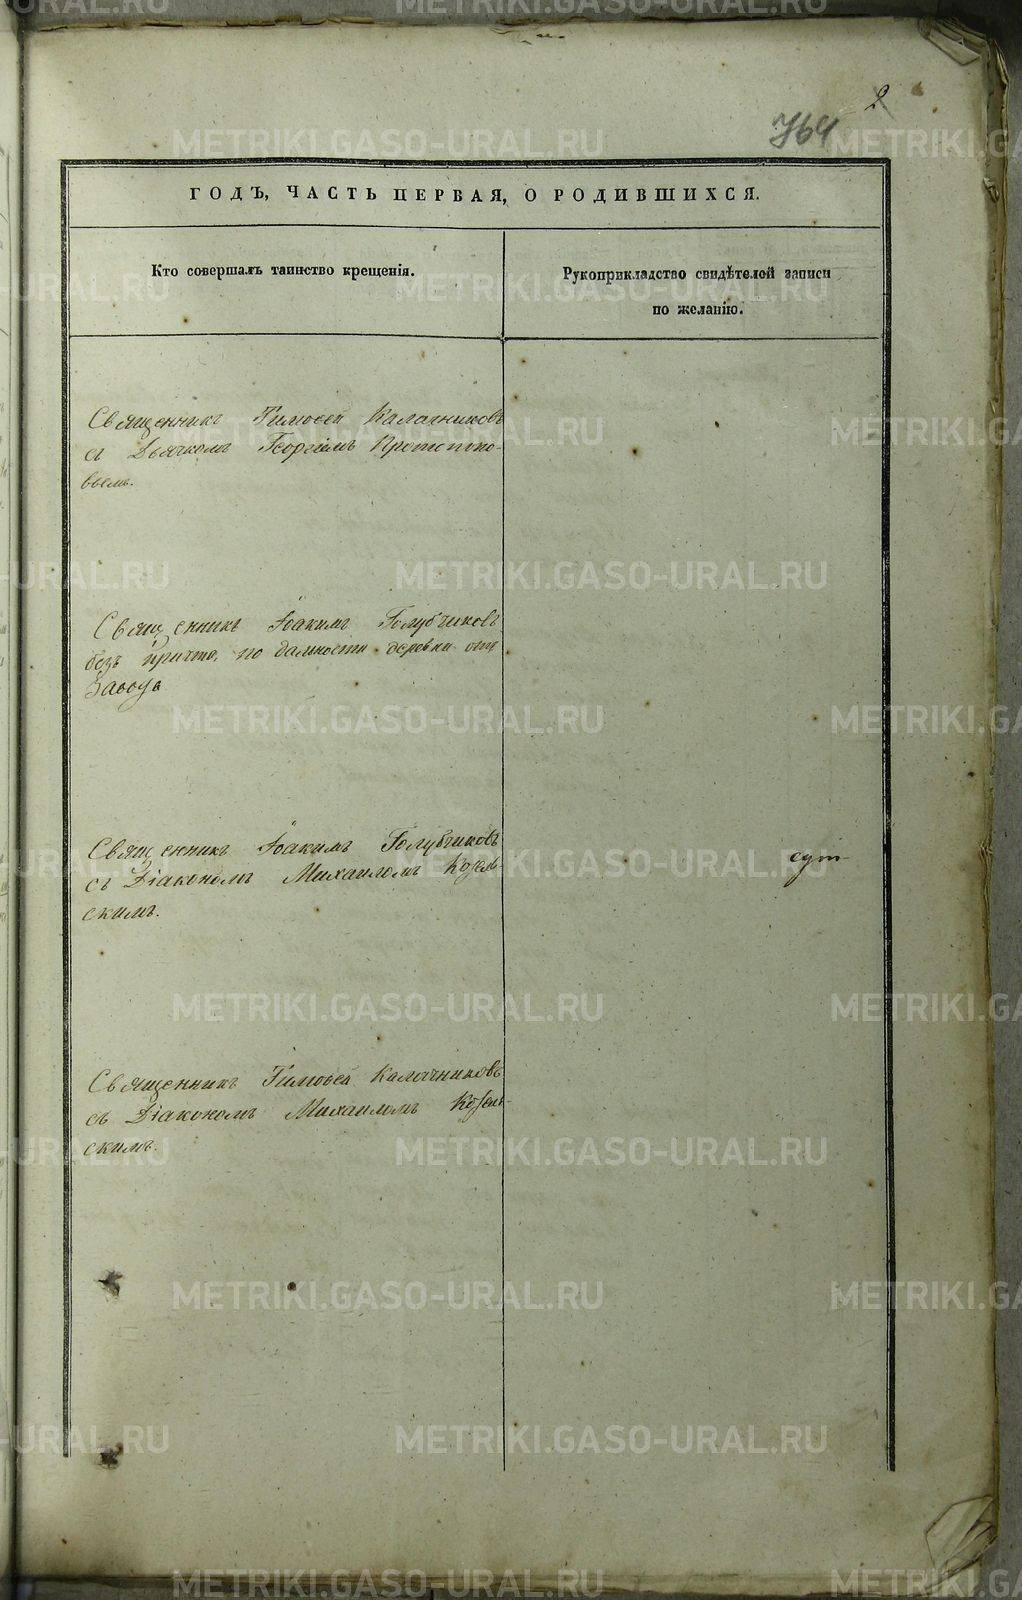 2
764
ГОДЪ, ЧАСТЬ ПЕРВАЯ, О РОДИВШИХСЯ.
Кто совершалъ таинство крещенія.
Рукоприкладство свидѣтелей записи
по желанію.
Священникъ Тимоѳей Калачниковъ
съ Дьячкомъ Георгіемъ
вымъ.
Священникъ Іоакимъ Голубчиковъ
безъ причта, по дальности деревни отъ
Завода
Священникъ Іоакимъ Голубчиковъ
съ Діакономъ Михаиломъ Козель-
скимъ.
Священникъ Тимоѳей Калачниковъ
съ Діакономъ Михаиломъ Козель-
скимъ.
METRIKI.GASO-URAL.RU